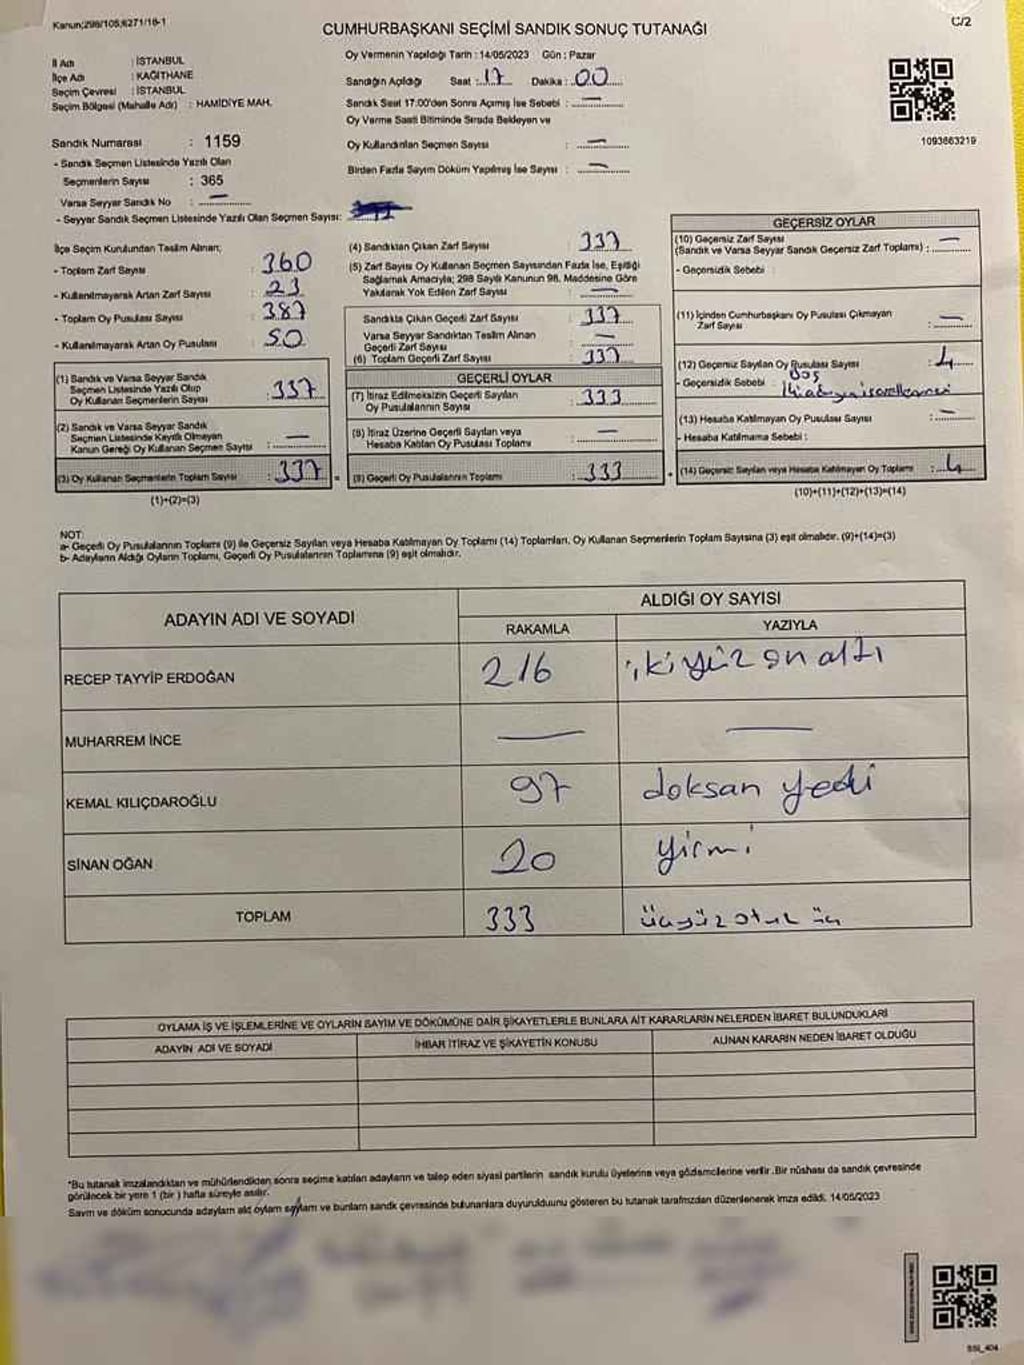 Kanun;298/105;6271/16-1
C/2
CUMHURBAŞKANI SEÇİMİ SANDIK SONUÇ TUTANAĞI
İl Adı : İSTANBUL
İlçe Adı : KAĞITHANE
Seçim Çevresi : İSTANBUL
Seçim Bölgesi (Mahalle Adı) : HAMİDİYE MAH.
Sandık Numarası : 1159
- Sandık Seçmen Listesinde Yazılı Olan
Seçmenlerin Sayısı : 365
Varsa Seyyar Sandık No : —
- Seyyar Sandık Seçmen Listesinde Yazılı Olan Seçmen Sayısı:
Oy Vermenin Yapıldığı Tarih : 14/05/2023 Gün : Pazar
Sandığın Açıldığı Saat : 17 Dakika : 00
Sandık Saat 17:00'den Sonra Açımış İse Sebebi : —
Oy Verme Saati Bitiminde Sırada Bekleyen ve
Oy Kullandırılan Seçmen Sayısı : —
Birden Fazla Sayım Döküm Yapılmış İse Sayısı : —
1093663219
İlçe Seçim Kurulundan Teslim Alınan;
- Toplam Zarf Sayısı : 360
- Kullanılmayarak Artan Zarf Sayısı : 23
- Toplam Oy Pusulası Sayısı : 387
- Kullanılmayarak Artan Oy Pusulası : 50
(1) Sandık ve Varsa Seyyar Sandık
Seçmen Listesinde Yazılı Olup
Oy Kullanan Seçmenlerin Sayısı : 337
(2) Sandık ve Varsa Seyyar Sandık
Seçmen Listesinde Kayıtlı Olmayan
Kanun Gereği Oy Kullanan Seçmen Sayısı : —
(3) Oy Kullanan Seçmenlerin Toplam Sayısı : 337
(1)+(2)=(3)
(4) Sandıktan Çıkan Zarf Sayısı : 337
(5) Zarf Sayısı Oy Kullanan Seçmen Sayısından Fazla İse, Eşitliği
Sağlamak Amacıyla; 298 Sayılı Kanunun 98. Maddesine Göre
Yakılarak Yok Edilen Zarf Sayısı : —
Sandıkta Çıkan Geçerli Zarf Sayısı : 337
Varsa Seyyar Sandıktan Teslim Alınan
Geçerli Zarf Sayısı : —
(6) Toplam Geçerli Zarf Sayısı : 337
GEÇERLİ OYLAR
(7) İtiraz Edilmeksizin Geçerli Sayılan
Oy Pusulalarının Sayısı : 333
(8) İtiraz Üzerine Geçerli Sayılan veya
Hesaba Katılan Oy Pusulası Toplamı : —
(9) Geçerli Oy Pusulalarının Toplamı : 333
GEÇERSİZ OYLAR
(10) Geçersiz Zarf Sayısı
(Sandık ve Varsa Seyyar Sandık Geçersiz Zarf Toplamı) : —
- Geçersizlik Sebebi :
(11) İçinden Cumhurbaşkanı Oy Pusulası Çıkmayan
Zarf Sayısı : —
(12) Geçersiz Sayılan Oy Pusulası Sayısı : 4
- Geçersizlik Sebebi : Boş
(13) Hesaba Katılmayan Oy Pusulası Sayısı : —
- Hesaba Katılmama Sebebi :
(14) Geçersiz Sayılan veya Hesaba Katılmayan Oy Toplamı : 4
(10)+(11)+(12)+(13)=(14)
NOT:
a- Geçerli Oy Pusulalarının Toplamı (9) ile Geçersiz Sayılan veya Hesaba Katılmayan Oy Toplamı (14) Toplamları, Oy Kullanan Seçmenlerin Toplam Sayısına (3) eşit olmalıdır. (9)+(14)=(3)
b- Adayların Aldığı Oyların Toplamı, Geçerli Oy Pusulalarının Toplamına (9) eşit olmalıdır.
ADAYIN ADI VE SOYADI
ALDIĞI OY SAYISI
RAKAMLA YAZIYLA
RECEP TAYYİP ERDOĞAN 216 ikiyüz on altı
MUHARREM İNCE — —
KEMAL KILIÇDAROĞLU 97 doksan yedi
SİNAN OĞAN 20 yirmi
TOPLAM 333 üçyüz otuz üç
OYLAMA İŞ VE İŞLEMLERİNE VE OYLARIN SAYIM VE DÖKÜMÜNE DAİR ŞİKAYETLERLE BUNLARA AİT KARARLARIN NELERDEN İBARET BULUNDUKLARI
ADAYIN ADI VE SOYADI İHBAR İTİRAZ VE ŞİKAYETİN KONUSU ALINAN KARARIN NEDEN İBARET OLDUĞU
*Bu tutanak imzalandıktan ve mühürlendikten sonra seçime katılan adayların ve talep eden siyasi partilerin sandık kurulu üyelerine veya gözlemcilerine verilir.Bir nüshası da sandık çevresinde
görülecek bir yere 1 (bir ) hafta süreyle asılır.
Sayım ve döküm sonucunda adayların aldı oyların sayıların ve bunların sandık çevresinde bulunanlara duyurulduunu gösteren bu tutanak tarafımızdan düzenlenerek imza edildi. 14/05/2023
SSI_404